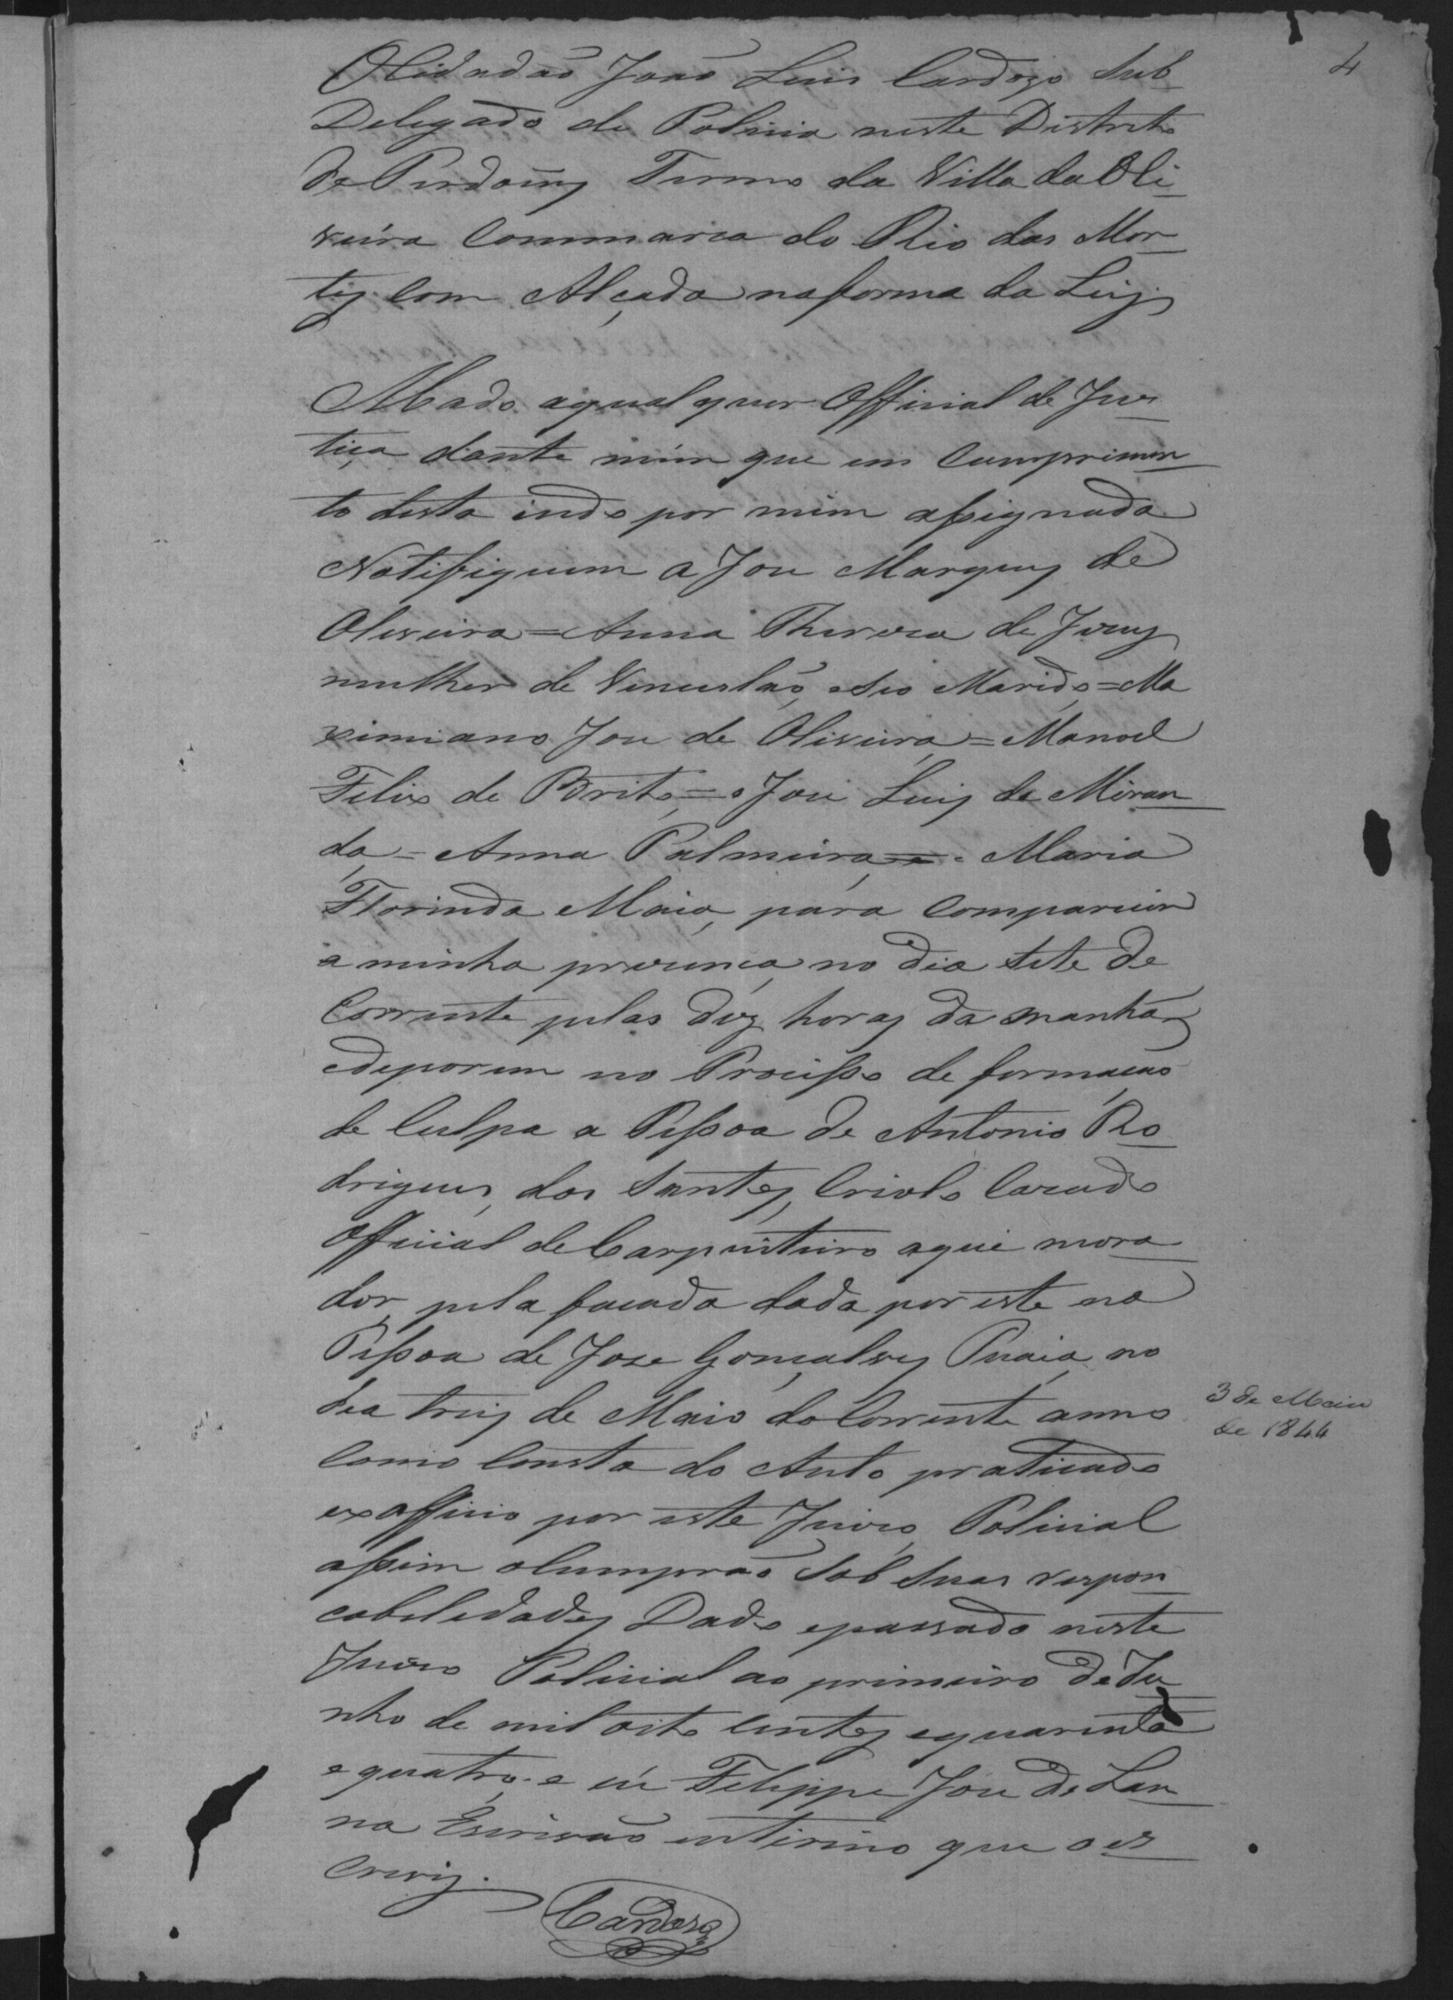 4
O Cidadão João Luis Cardozo Sub
Delegado de Policia neste Distrito
de Perdoẽns Termo da Villa da Oli
veira Commarca do Rio das Mor
tes com Alçada na forma da Leij
Mado aqualquer Official de Jus
tiça dante mim que em Cumprimen
to desta indo por mim assignada
Notifiquem a Jose Marques de
Oliveira = Anna Thereza de Jesus
mulher de Vencesláo, e Seo Marido = Ma
ximiano Jose de Oliveira = Manoel
Felis de Brito = Jose Luis de Miran
da = Anna Palmeira = e Maria
Florinda Maia, para Comparecer
a minha prezença no dia Sete de
Corrente pelas déz horas da manhã
edeporem no Procésso de formação
de Culpa a Pessoa de Antonio Ro
drigues dos Santos, Criolo Cazado
Official de Carpinteiro aqui mora
dor, pela facada dada por este na
Pessoa de Jose Gonçalves Praia, no
dia treis de Maio do Corrente anno
3 de Maio
de 1844
Como Consta do Auto praticado
exofficio por este Juizo Policial
assim oCumprão Sob Suas respon
cabelidades Dado epassado neste
Juizo Policial ao primeiro de Ju
nho de mil oito Centos equarenta
equatro, e eu Felippe Jose de Lan
na Escrivão interino que oes
crevij.
Cardozo